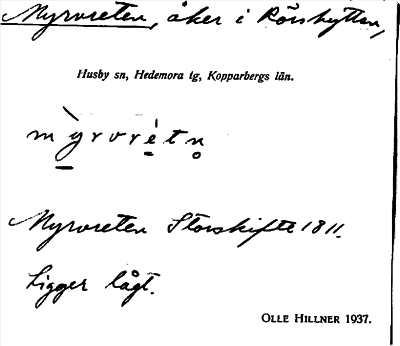 Myrvreten, åker i Rörshyttan,
Husby sn, Hedemora tg, Kopparbergs län.
Myrvreten Storskifte 1811.
Ligger lågt.
OLLE HILLNER 1937.